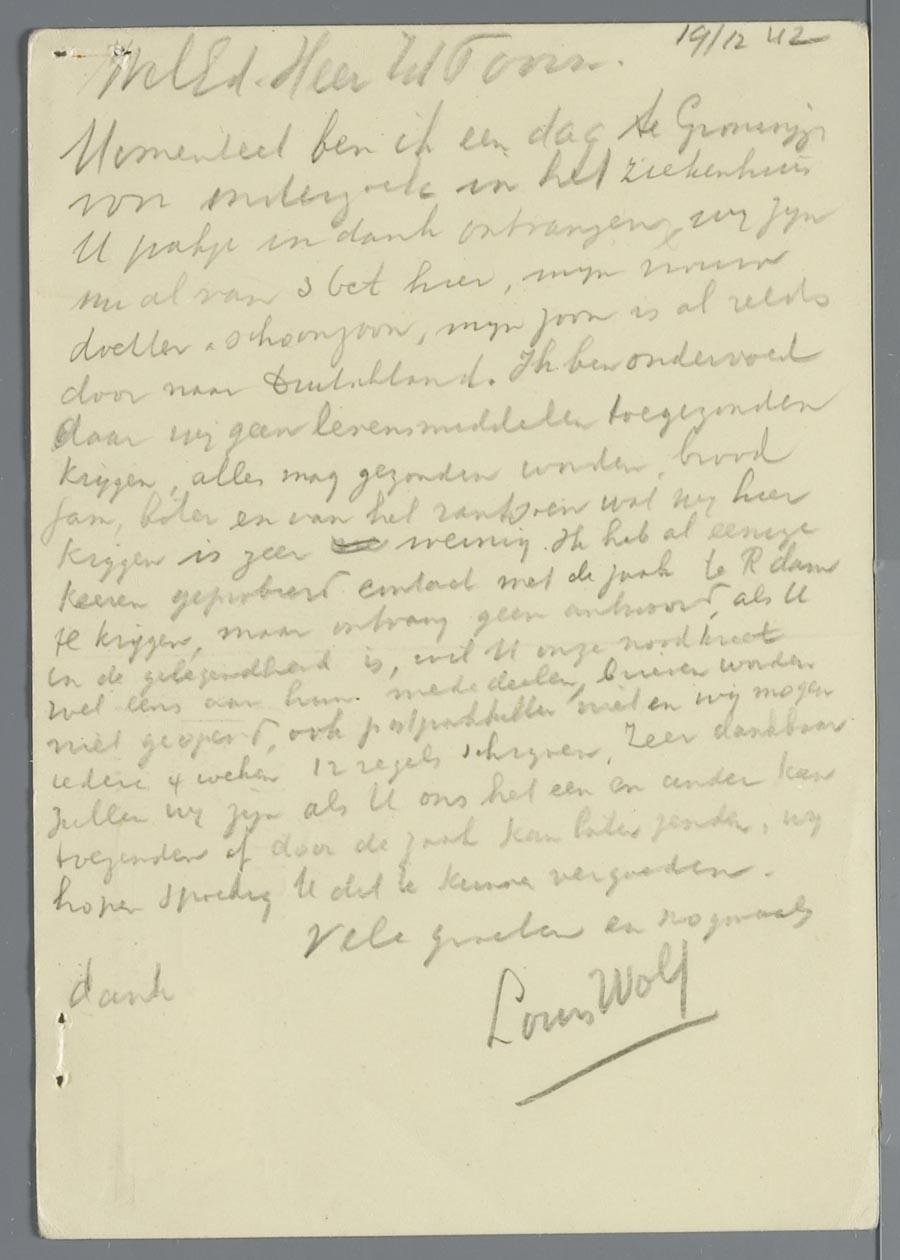 19/12 42
WelEd. Heer
Momenteel ben ik een dag te Groningen
voor onderzoek in het ziekenhuis
U pakje in dank ontvangen, wij zijn
nu al van 3 Oct hier, mijn vrouw
dochter & schoonzoon, mijn zoon is al reeds
door naar Duitschland. Ik ben ondervoed
daar wij geen levensmiddelen toegezonden
krijgen, alles mag gezonden worden, brood
jam, boter en van het rantsoen wat wij hier
krijgen is zeer weinig. Ik heb al eenige
keeren geprobeerd contact met de zaak te R dam
te krijgen, maar ontvang geen antwoord, als U
in de gelegendheid is, wil U onze noodkreet
wel eens aan hun mededeelen, brieven worden
niet geopend, ook postpakketten niet en wij mogen
iedere 4 weken 12 regels schrijven, Zeer dankbaar
zullen wij zijn als U ons het een en ander kan
toezenden of door de zaak kan laten zenden, wij
hopen spoedig U dit te kunnen vergoeden.
Vele groeten en nogmaals
dank
Louis Wolf